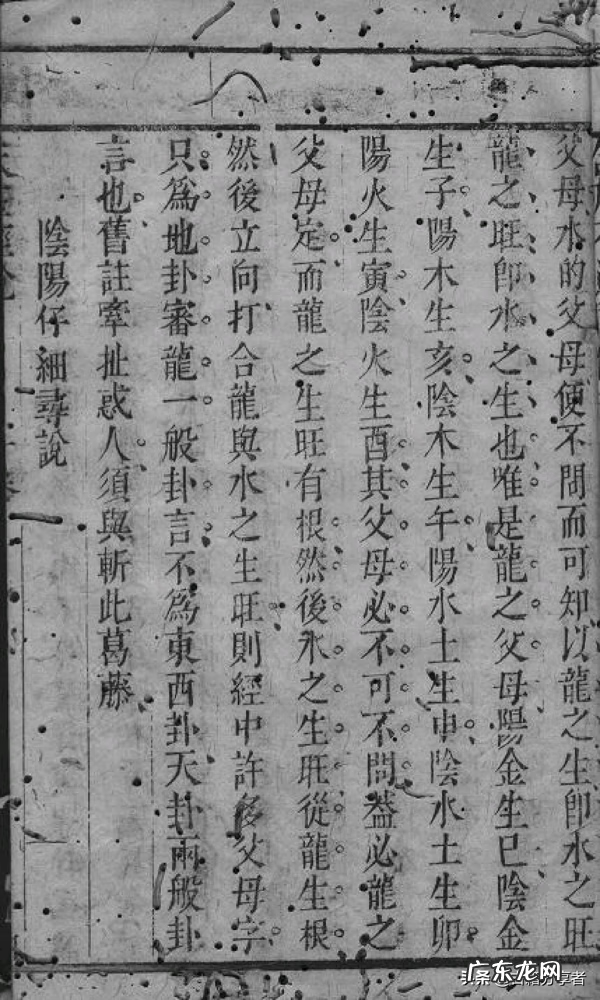 父母水的父母便不問而可知以龍之生卽水之旺
龍之旺卽水之生也唯是龍之父母陽金生巳陰金
生子陽木生亥陰木生午陽水土生申陰水土生卯
陽火生寅陰火生酉其父母必不可不問葢必龍之
父母定而龍之生旺有根然後水之生旺從龍生根
然後立向打合龍與水之生旺則經中許多父母字
只為地卦審龍一般卦言不為東西卦天卦兩般卦
言也舊註牽扯惑人須與斬此葛藤
陰陽仔細尋說
广东龙网
头条 @古籍分享者